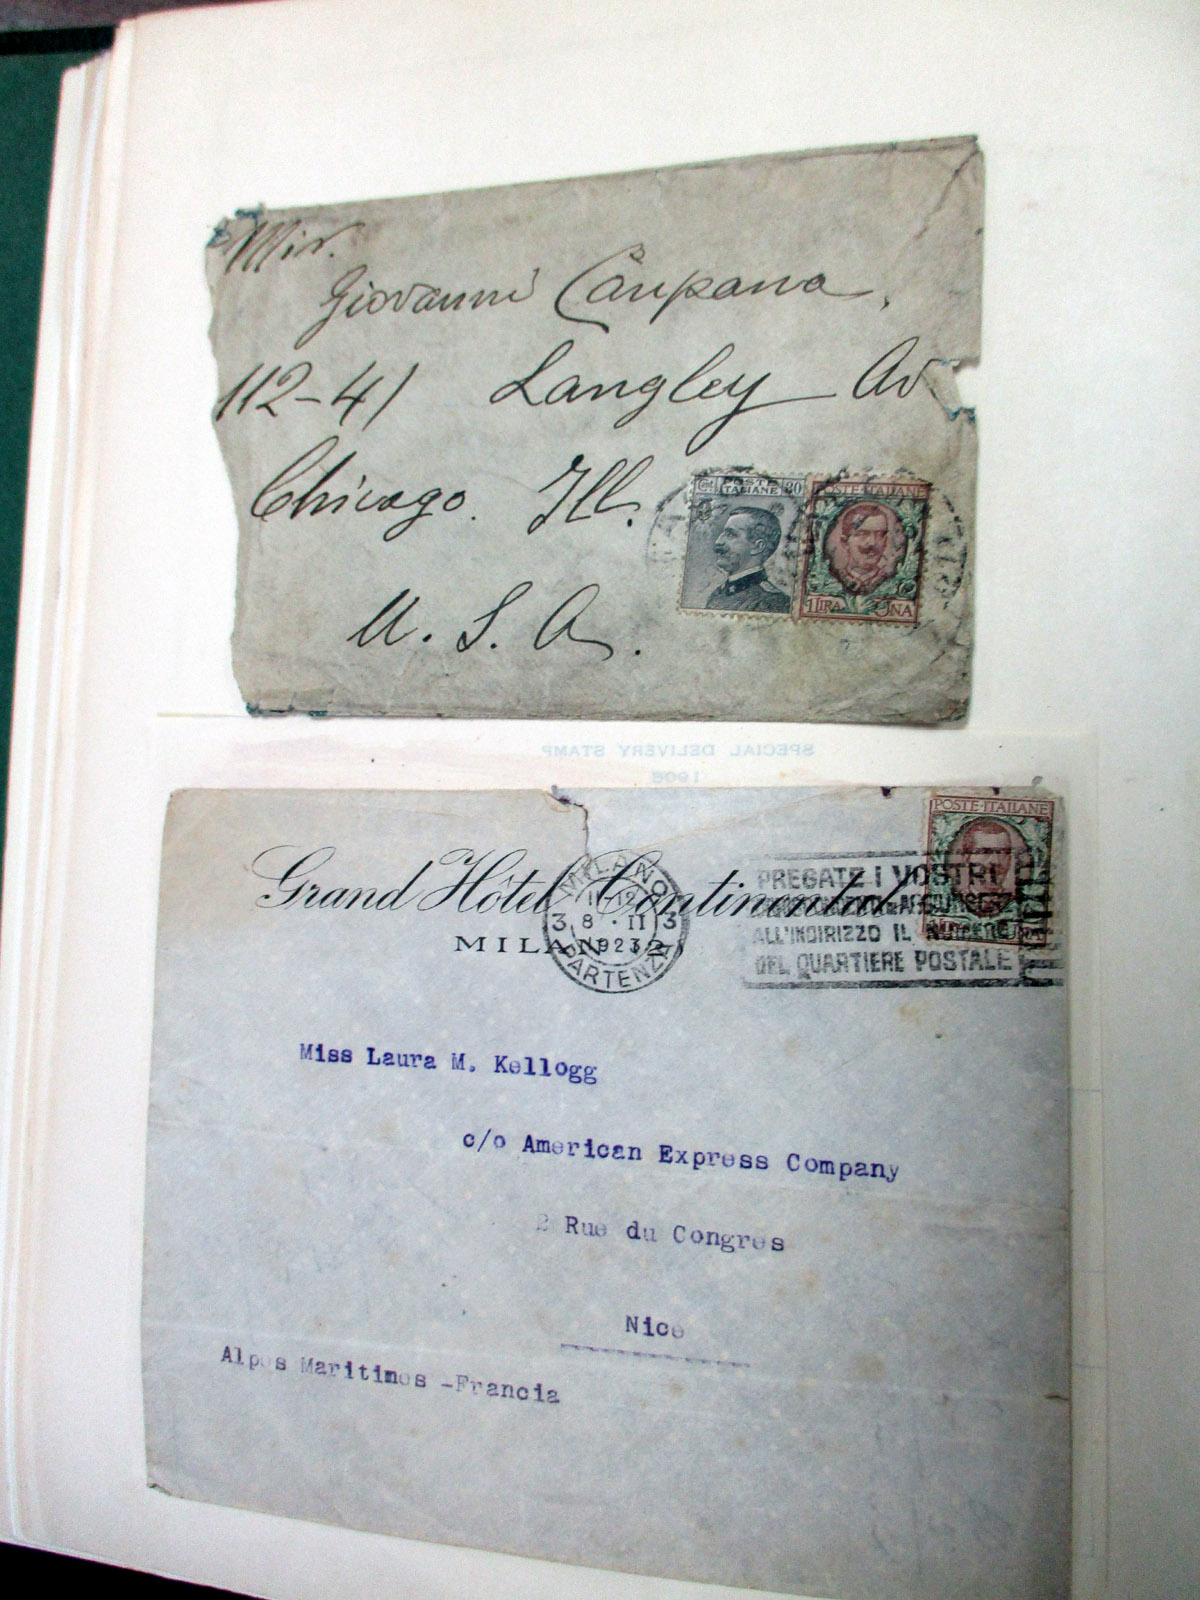 Mir.
Giovanni Campana,
112-41 Langley Av
Chicago. Ill.
U. S. A.
POSTE ITALIANE 30
POSTE·ITALIANE
1 LIRA UNA
SPECIAL DELIVERY STAMP
1908
POSTE·ITALIANE
Grand Hôtel Continental
MILANO
MILANO
PARTENZA
3 8 · II 3
1923
PREGATE I VOSTRI
ALL'INDIRIZZO IL NUMERO
DEL QUARTIERE POSTALE
Miss Laura M. Kellogg
c/o American Express Company
2 Rue du Congres
Nice
Alpes Maritimes -Francia